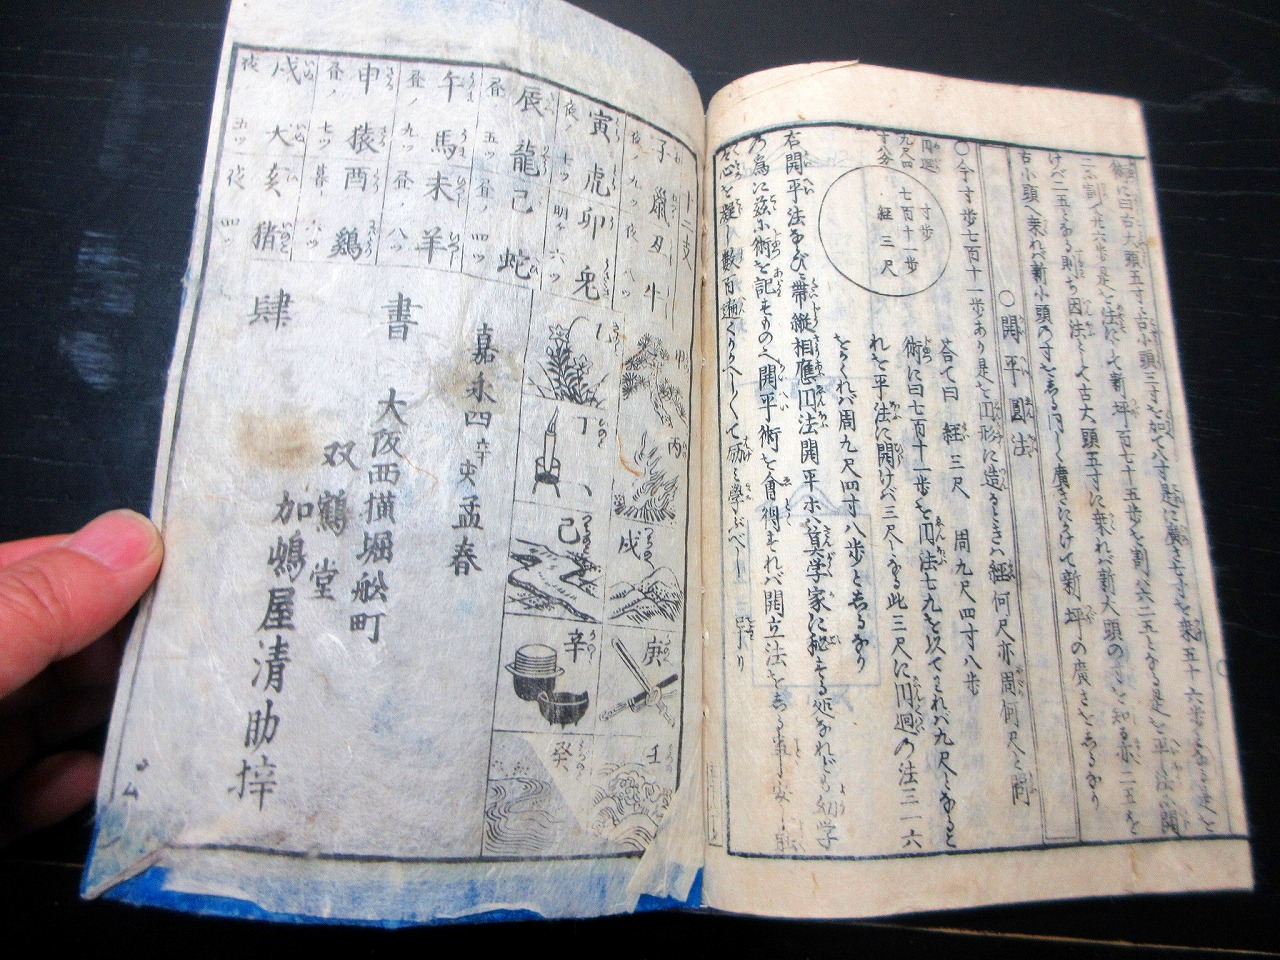 術に曰古大頭五寸古小頭三寸を加て八寸是に廣さ七寸を乗五十六歩となる是を
二ニ割廿八歩是を法にして新坪百七十五歩を割八六二五となる是を平法に開
けバ二五となる則ち因法として古大頭五寸に乗れバ新大頭の寸を知る亦二五を
古小頭へ乗れバ新小頭の寸をしる同しく廣さにかけて新坪の廣さをしるなり
〇開平圓法
〇今寸歩七百十一歩あり是を円形に造るときハ経何尺亦周何尺と問
円廻
九尺四
寸八分
寸歩
七百十一歩
経三尺
荅て曰 経三尺 周九尺四寸八歩
術に曰七百十一歩を円法七九を以てされバ九尺となると
れを平法に開けバ三尺となる此三尺に円廻の法三一六
をかくれバ周九尺四寸八歩としるなり
右開平法ならび帯縦相應円法開平ホハ算学家に秘する処なれども幼学
の為に茲に術を記すもの也開平術を會得すれバ開立法をしる事
心を凝し数百遍くりかへしして励ミ学ぶべし
十二支
子 鼠 丑 牛
夜ノ九ツ 夜 八ツ
寅 虎 卯 兎
夜ノ七ツ 明ケ六ツ
辰 龍 巳 蛇
昼 五ツ 昼ノ四ツ
午 馬 未 羊
昼ノ九ツ 昼ノ八ツ
申 猿 酉 鶏
昼ノ七ツ 暮 六ツ
戌 犬 亥 猪
夜 五ツ 夜 四ツ
甲
乙
丙
丁
戊
己
庚
辛
壬
癸
嘉永四辛亥孟春
書
肆
大阪西横堀舩町
双鶴堂
加嶋屋清助梓